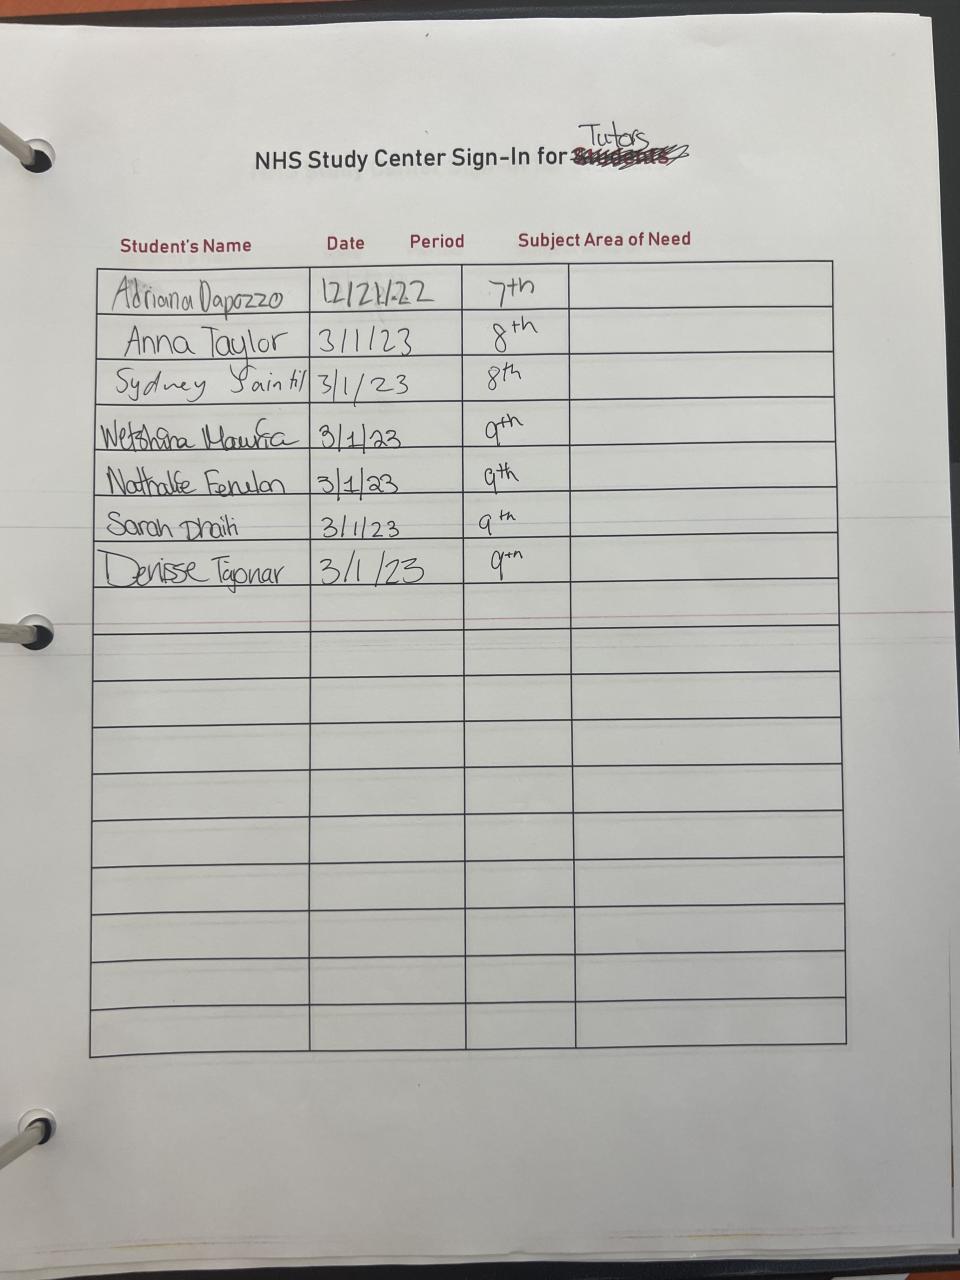 Tutors
NHS Study Center Sign-In for Students
Student's Name Date Period Subject Area of Need
Adriana Dapozzo 12/21/22 7th
Anna Taylor 3/1/23 8th
Sydney Saintil 3/1/23 8th
3/1/23 9th
Nathalie Fenelon 3/1/23 9th
Sarah Dhaiti 3/1/23 9th
Denisse 3/1/23 9th